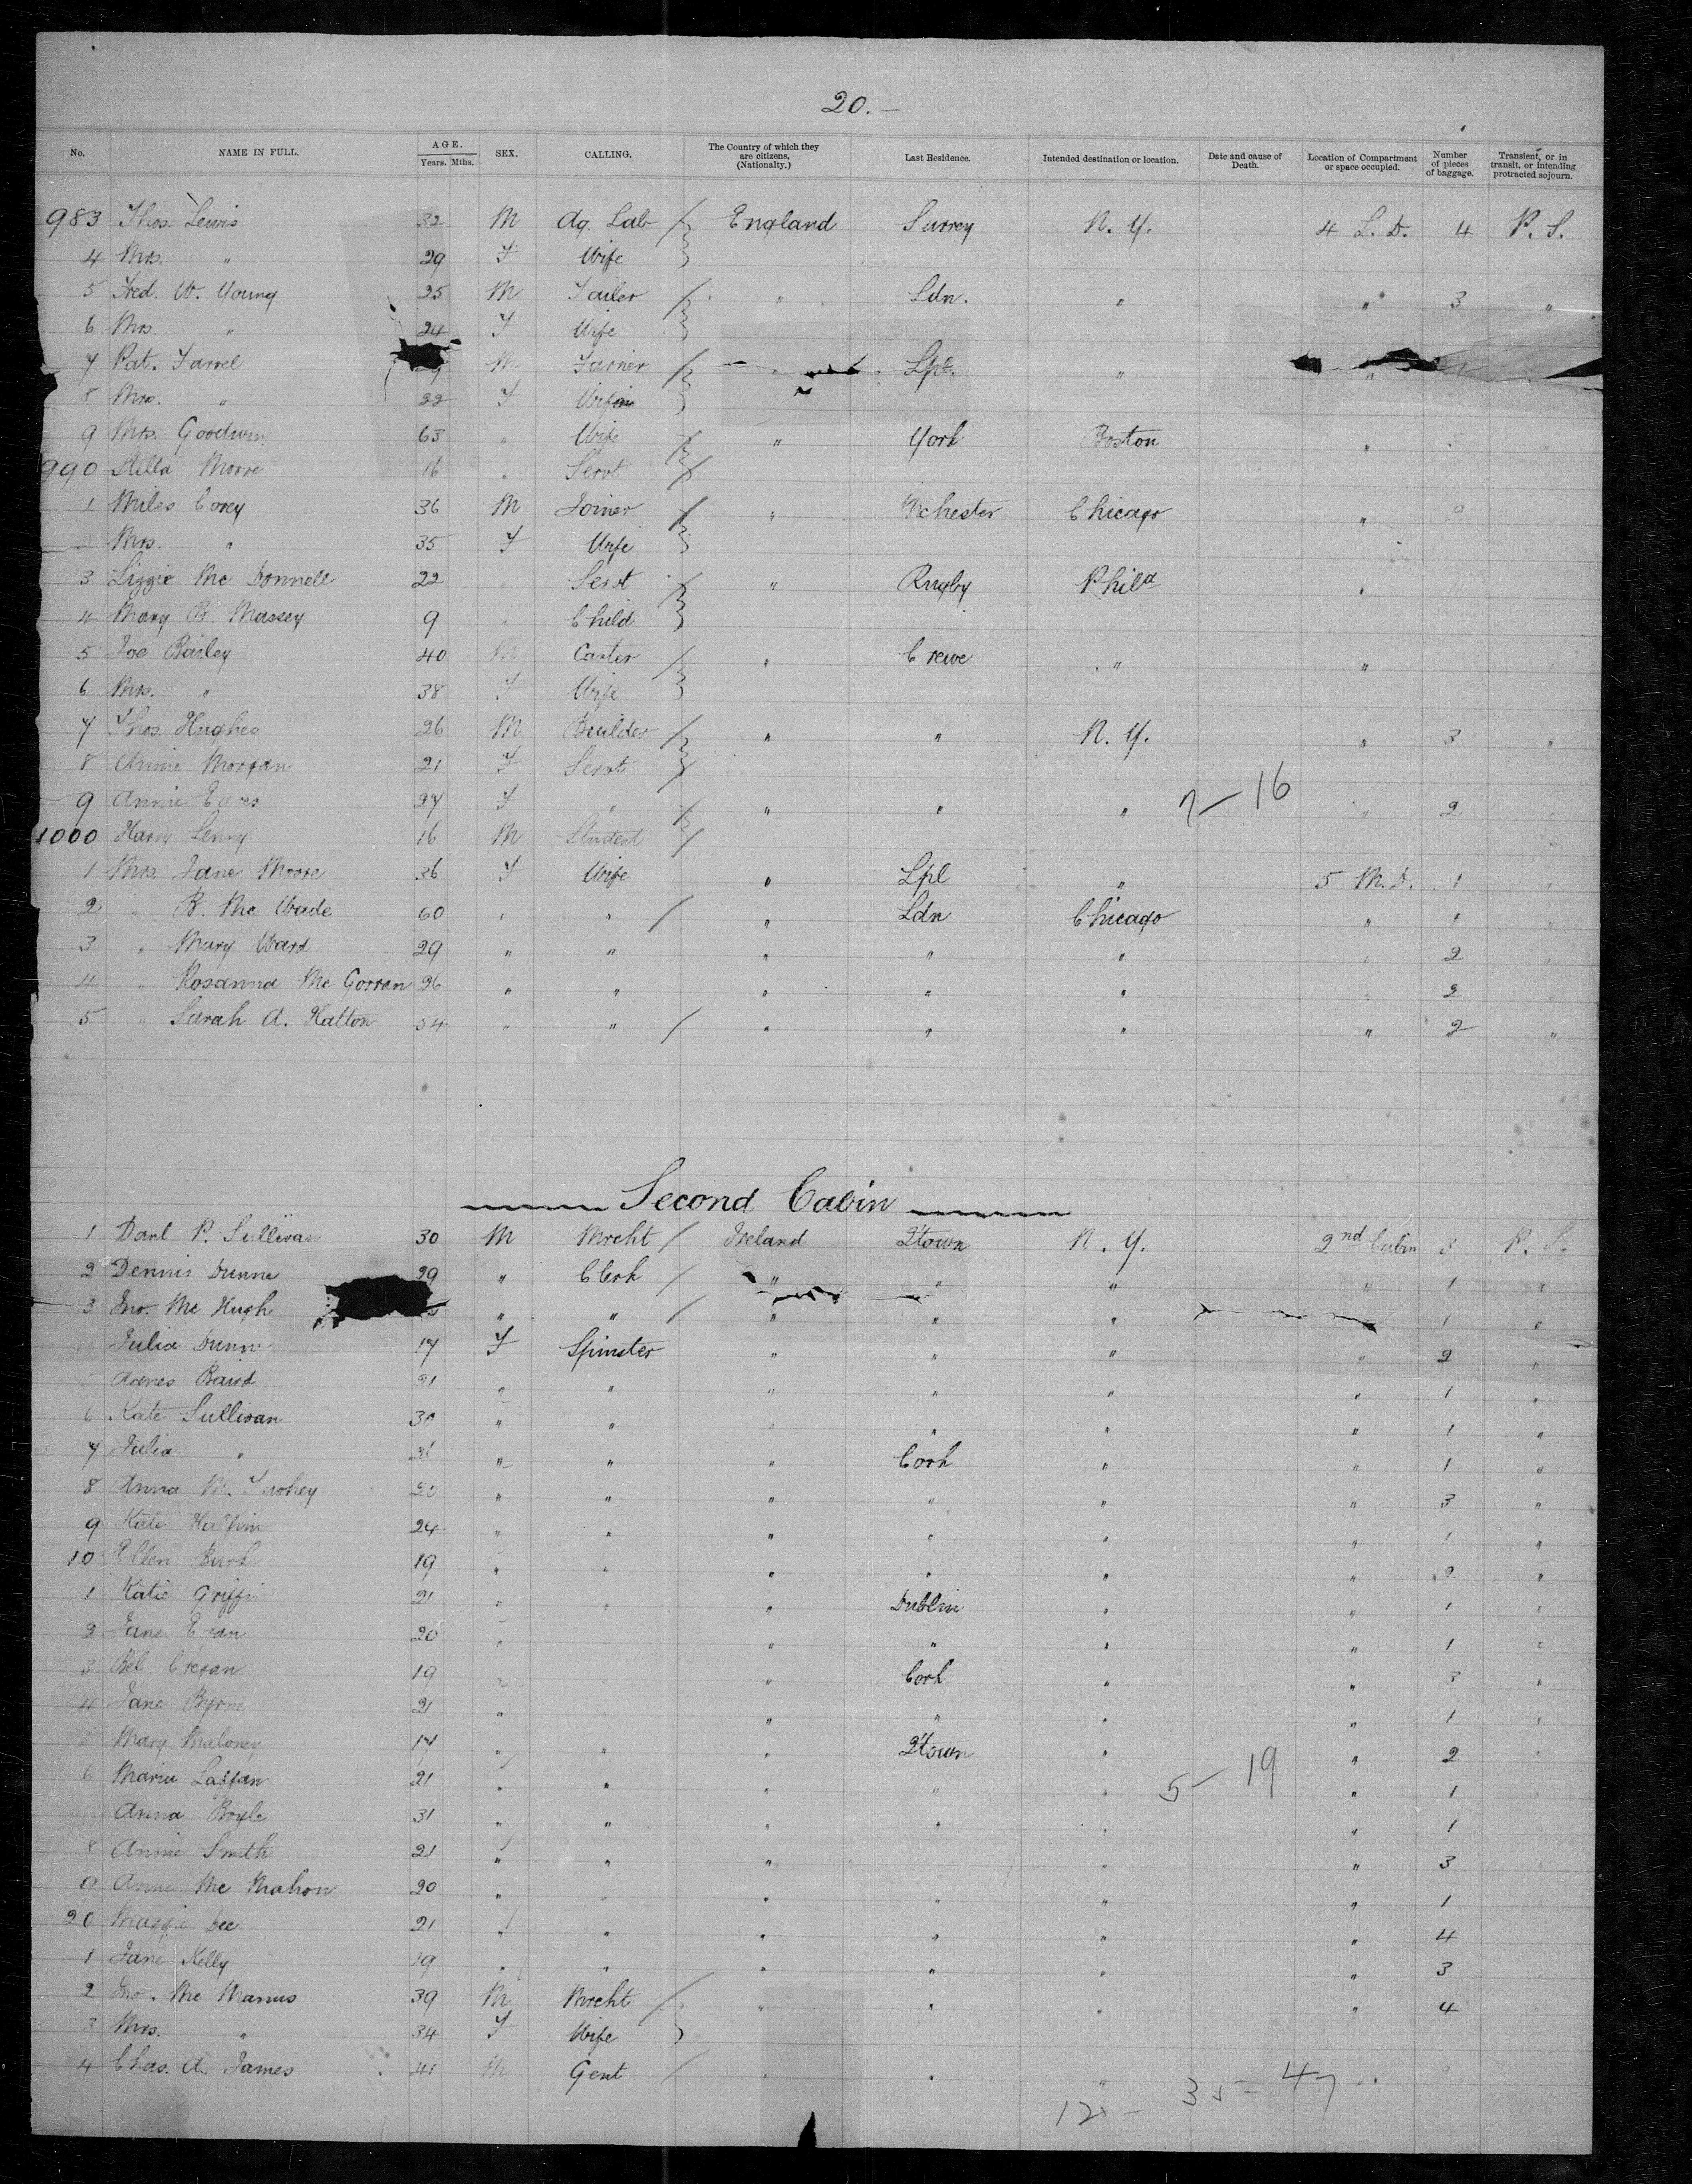 20.—
No. NAME IN FULL. AGE. Years. Mths. SEX. CALLING. The Country of which they are citizens. (Nationality.) Last Residence. Intended destination or location. Date and cause of Death. Location of Compartment or space occupied. Number of pieces of baggage. Transient, or in transit, or intending protracted sojourn.
983 Thos. Lewis 32 M Ag. Lab England Surrey N. Y. 4 L. D. 4 P. S.
4 Mrs. " 29 F Wife
5 Fred. W. Young 25 M Tailer " Ldn. " " 3 "
6 Mrs. " 24 F Wife
7 Pat. Farrel M Farrier " Lpl. " "
8 Mrs. " 22 F Wife
9 Mrs. Goodwin 63 " Wife " York Boston " 3
990 Stella Moore 16 " Servt
1 Miles Corey 36 M Joiner " Mchester Chicago " 2
2 Mrs. " 35 F Wife
3 Lizzie Mc Donnell 22 " Servt " Rugby Phila "
4 Mary B. Massey 9 " Child
5 Joe Bailey 40 M Carter " Crewe " "
6 Mrs. " 38 F Wife
7 Thos. Hughes 26 M Builder " " N. Y. " 3 "
8 Annie Morgan 21 F Servt
9 Annie 27 F " " " " 7 — 16 " 2 "
1000 Harry 16 M Student
1 Mrs. Jane Moore 36 F Wife " Lpl " 5 M. D. 1 "
2 " B. Mc Wade 60 " " " Ldn Chicago " 1 "
3 " Mary Ward 29 " " " " " " 2 "
4 " Rosanna Mc Gorran 26 " " " " " " 2 "
5 " Sarah A. Hatton 54 " " " " " " 2 "
Second Cabin
1 Danl P. Sullivan 30 M Mrcht Ireland Qtown N. Y. 2nd Cabin 3 P. S.
2 Dennis Dunne 29 " Clerk " " " " 1 "
3 Jno. Mc Hugh " " " " " 1 "
Julia Dunn 17 F Spinster " " " " 2 "
Agnes Baird 21 " " " " " " 1 "
6 Kate Sullivan 30 " " " " " " 1 "
7 Julia " 21 " " " Cork " " 1 "
8 Anna M. " " " " " " 3 "
9 Kate Halpin 24 " " " " " " 1 "
10 Ellen 19 " " " " " " 2 "
1 Katie Griffin 21 " " " Dublin " " 1 "
2 Jane 20 " " " " " 1 "
3 Bel Cregan 19 " " Cork " " 3 "
4 Jane Byrne 21 " " " " " 1 "
5 Mary Maloney 17 " " " Qtown " " 2 "
6 Maria Laffan 21 " " " " " 5 — 19 " 1
Anna Boyle 31 " " " " " " 1
8 Annie Smith 21 " " " " " 3
9 Anne Mc Mahon 20 " " " " " " 1
20 Maggie Dee 21 " " " " " " 4
1 Jane Kelly 19 " " " " " " 3
2 Jno. Mc Manus 39 M Mrcht " " " " 4
3 Mrs. " 34 F Wife
4 Chas. A. James 41 M Gent " " " "
12 — 35 — 47